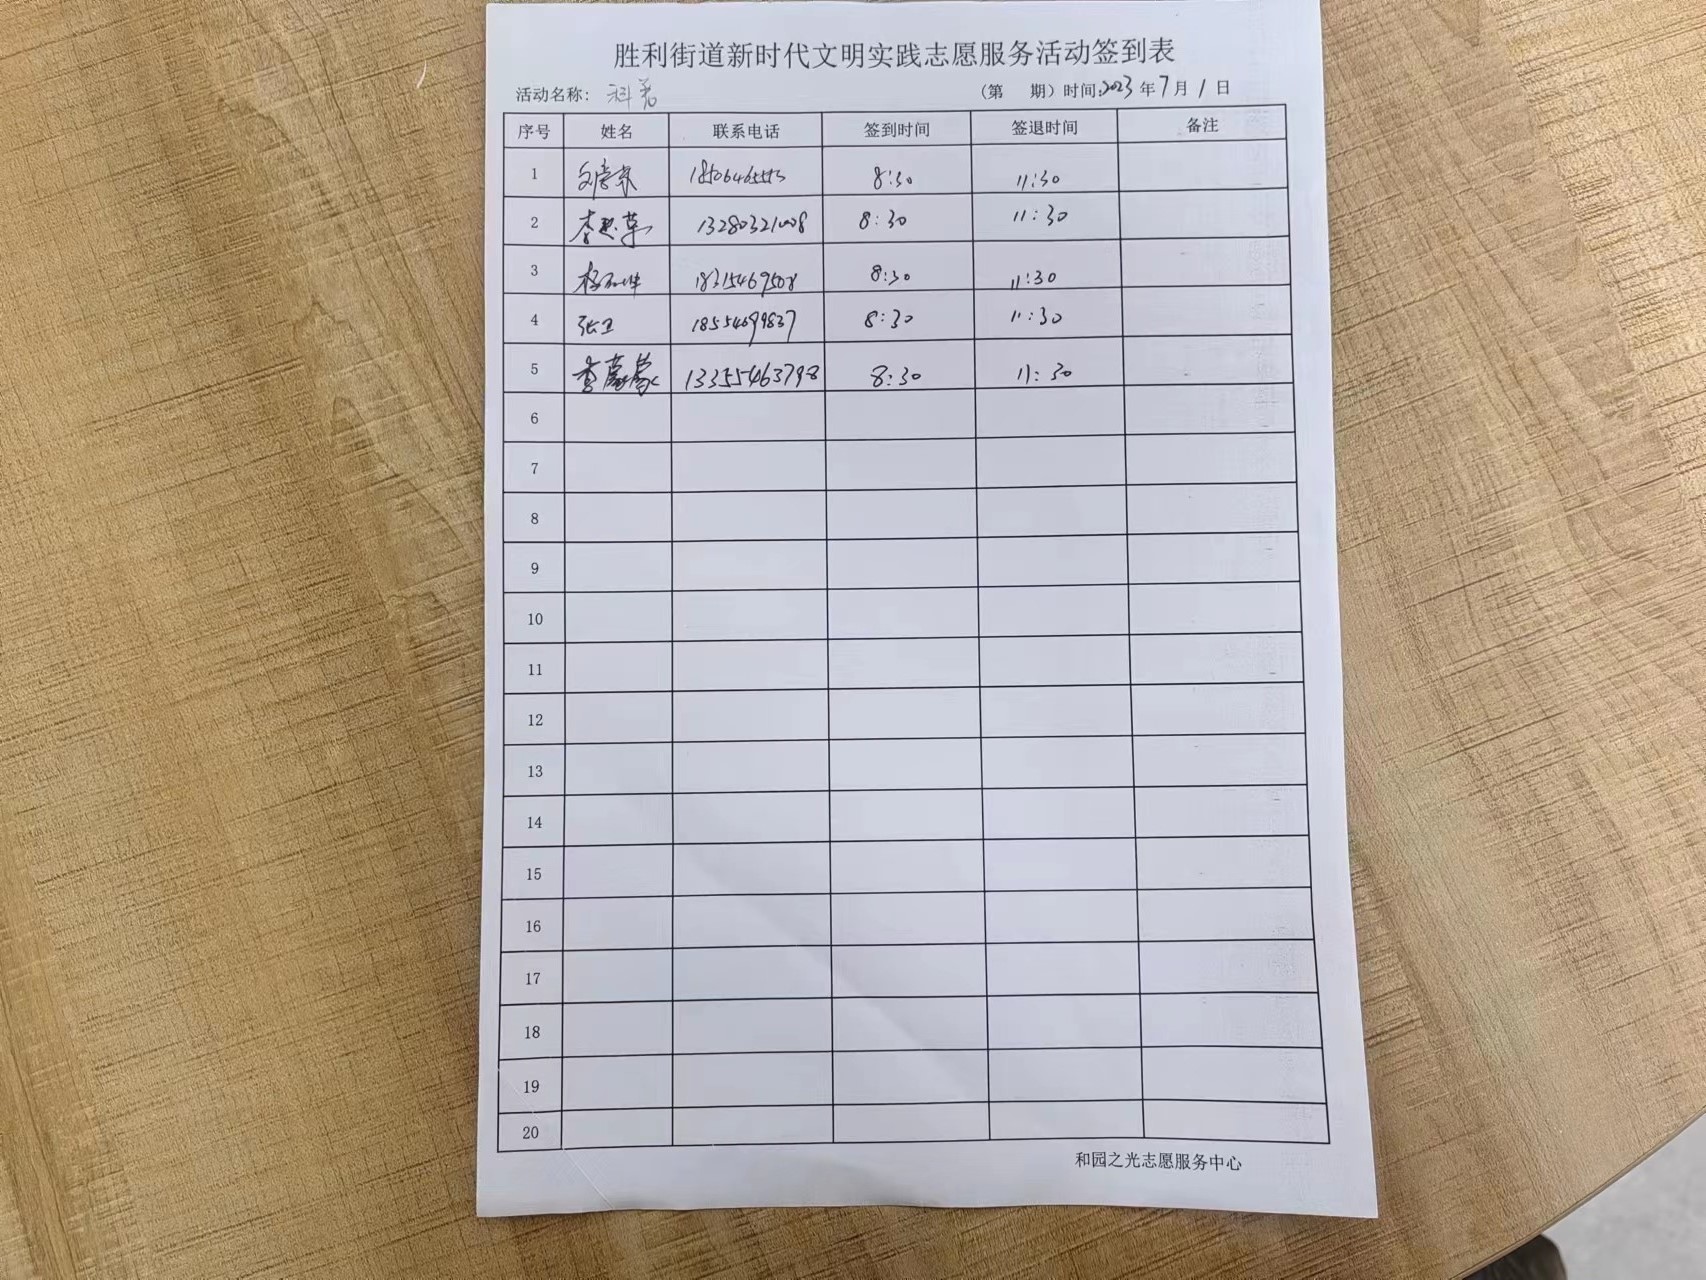 胜利街道新时代文明实践志愿服务活动签到表
活动名称: 科普 (第 期) 时间:2023年7月1日
序号 姓名 联系电话 签到时间 签退时间 备注
1 8:30 11:30
2 李 13280321008 8:30 11:30
3 杨 18315469508 8:30 11:30
4 张卫 18554699837 8:30 11:30
5 李蒙蒙 13355463798 8:30 11:30
6
7
8
9
10
11
12
13
14
15
16
17
18
19
20
和园之光志愿服务中心